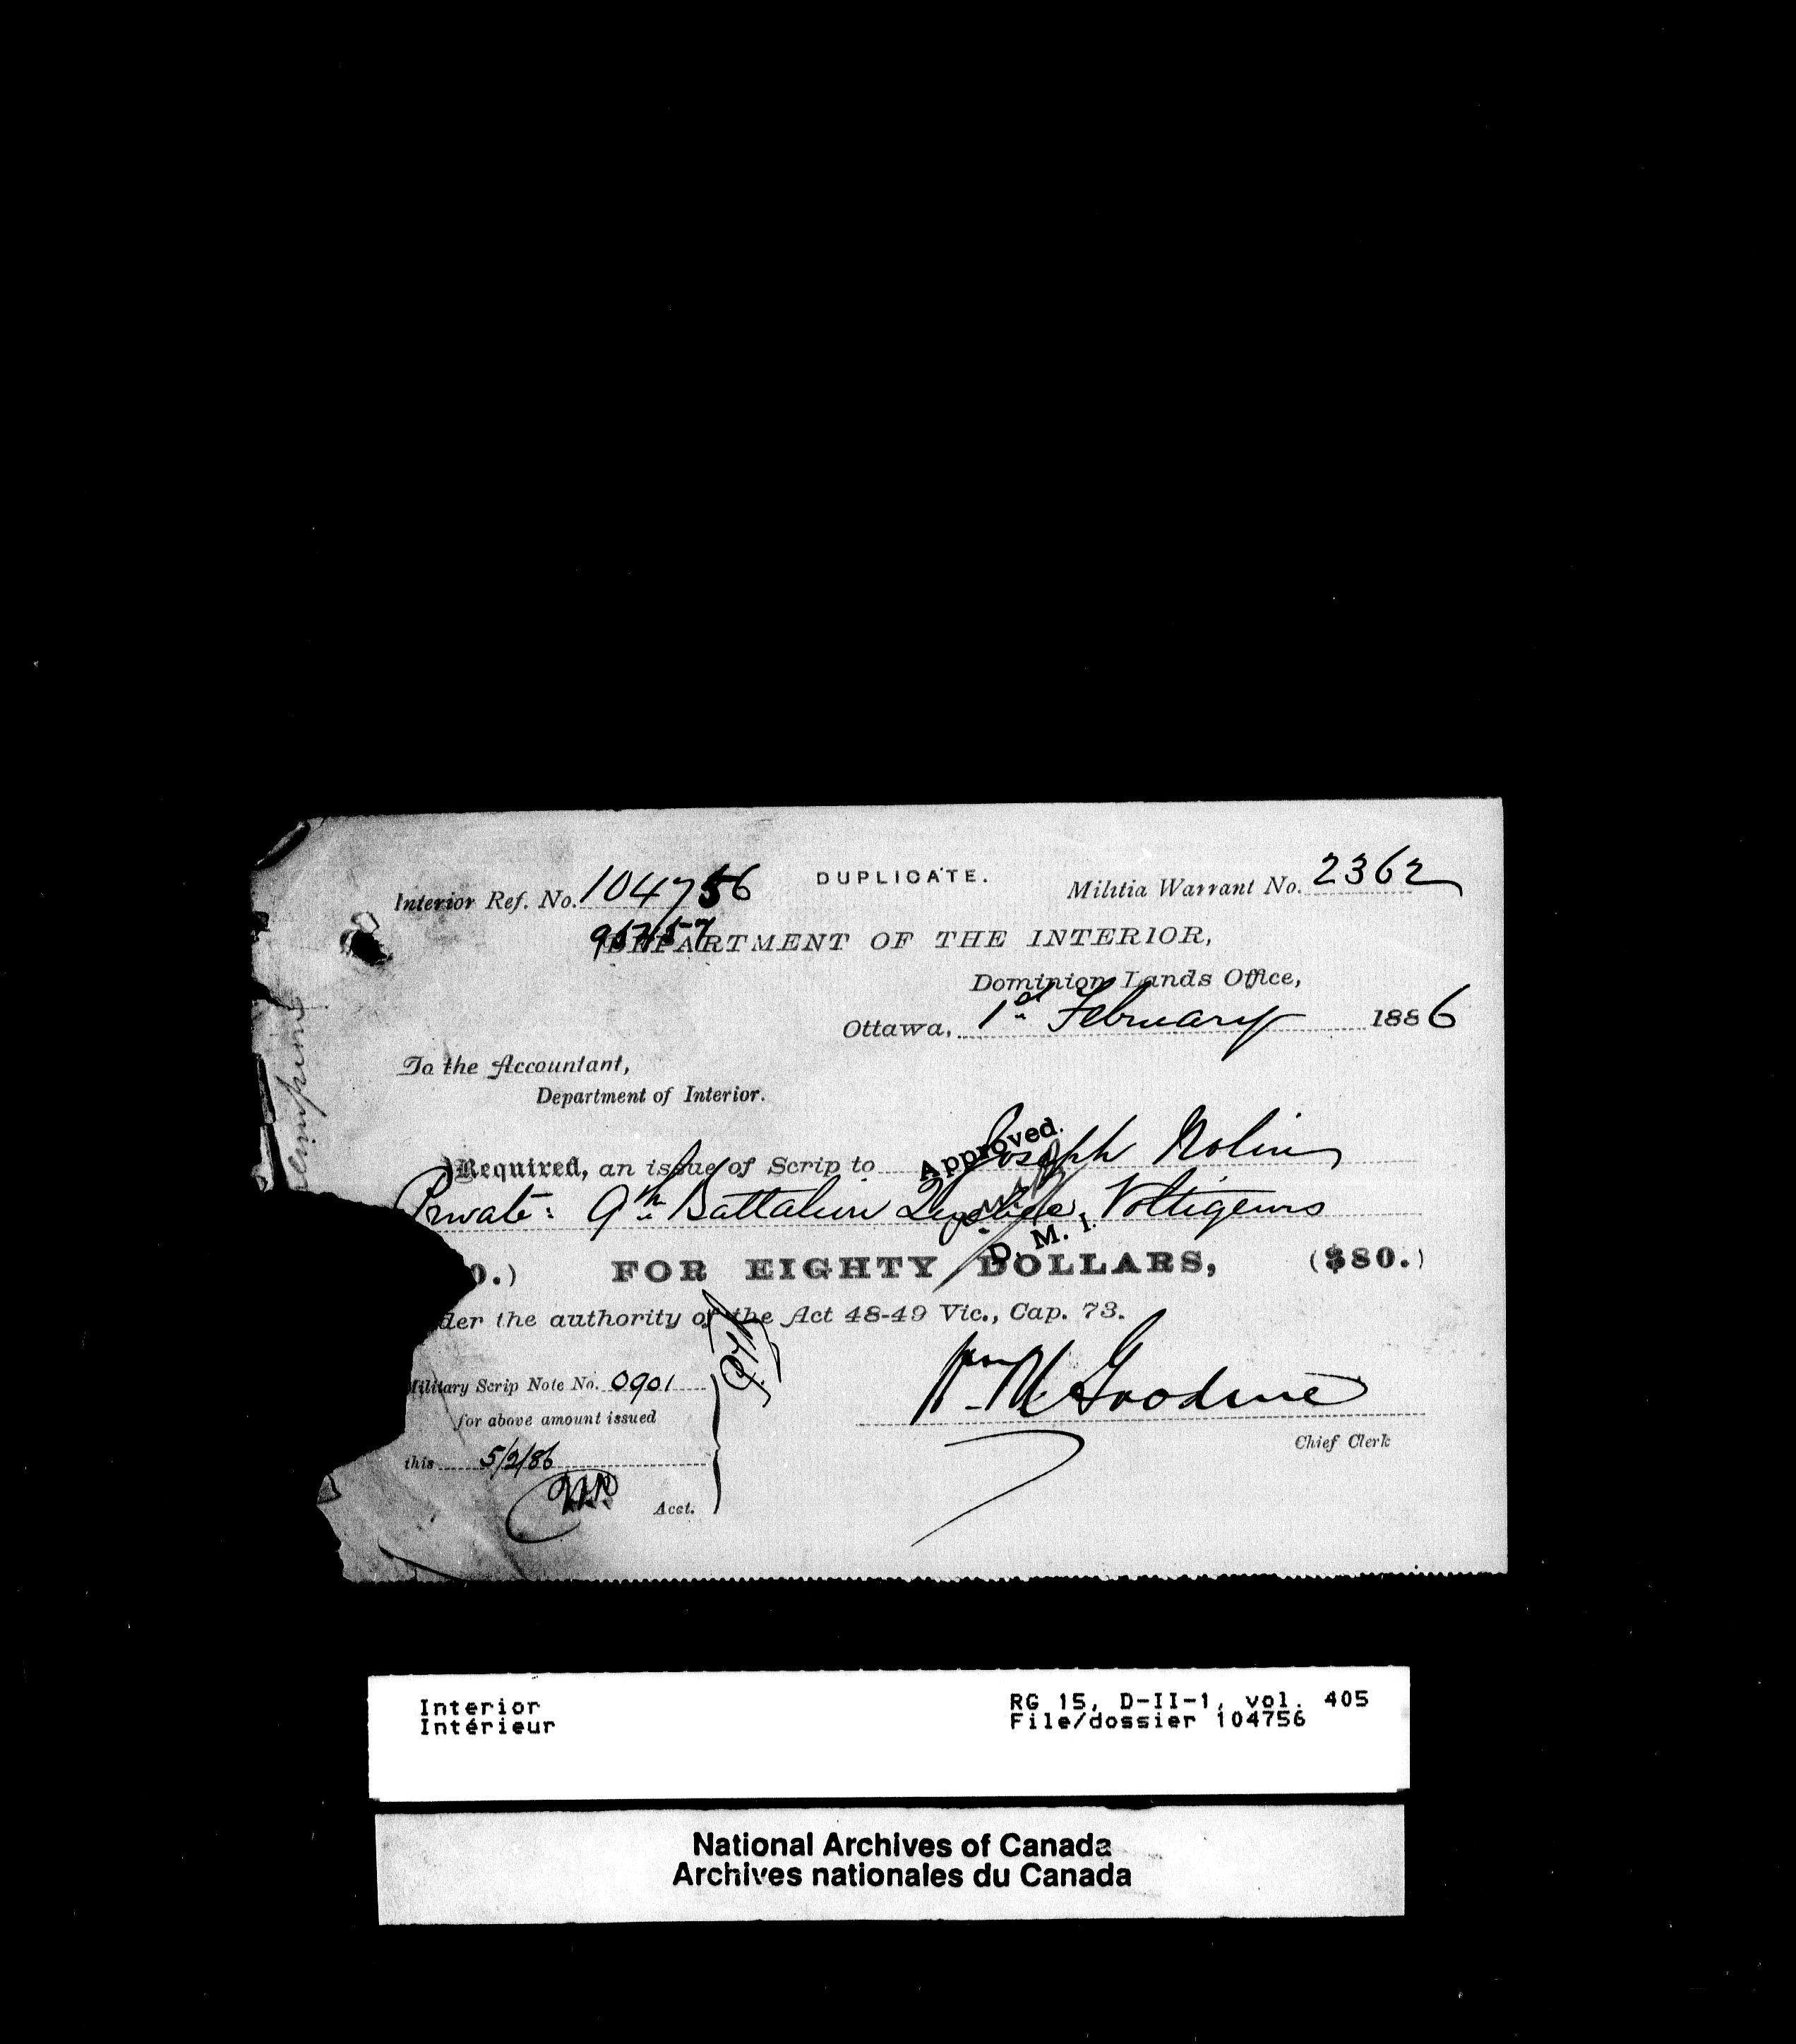 DUPLICATE.
Interior Ref. No. 104756
Militia Warrant No. 2362
DEPARTMENT OF THE INTERIOR,
Dominion Lands Office,
Ottawa, 1st February 1886
To the Accountant,
Department of Interior.
Required, an issue of Scrip to Joseph Nolin
Private: 9th Battalion Quebec Voltigeurs
Approved.
D. M. I.
0.) FOR EIGHTY DOLLARS, ($80.)
der the authority of the Act 48-49 Vic., Cap. 73.
Military Scrip Note No. 0901
for above amount issued
this 5/2/86
Acct.
Wm M Goodeve
Chief Clerk
Interior
Intérieur
RG 15, D-II-1, vol. 405
File/dossier 104756
National Archives of Canada
Archives nationales du Canada